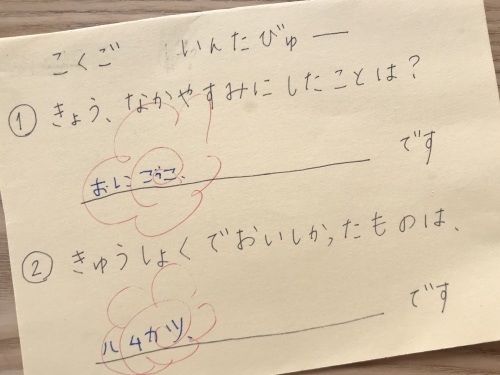 こくご いんたびゅー
① きょう、なかやすみにしたことは？
おにごっこ、です
② きゅうしょくでおいしかったものは、
ハムカツ、です